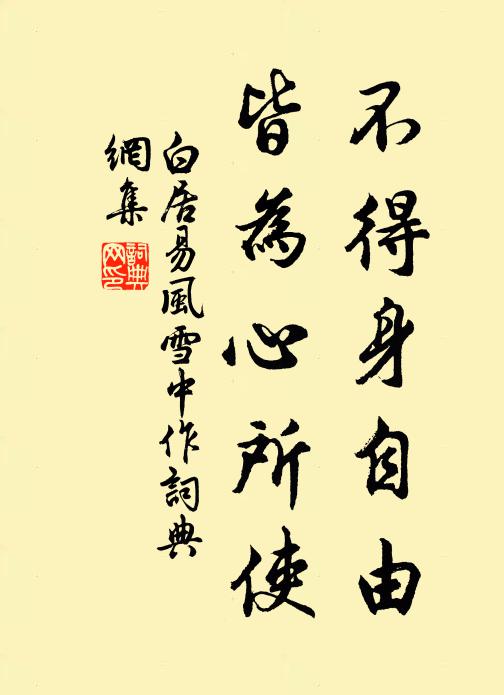 不得身自由
皆為心所使
白居易風雪中作詞典
網集
詞典
网印